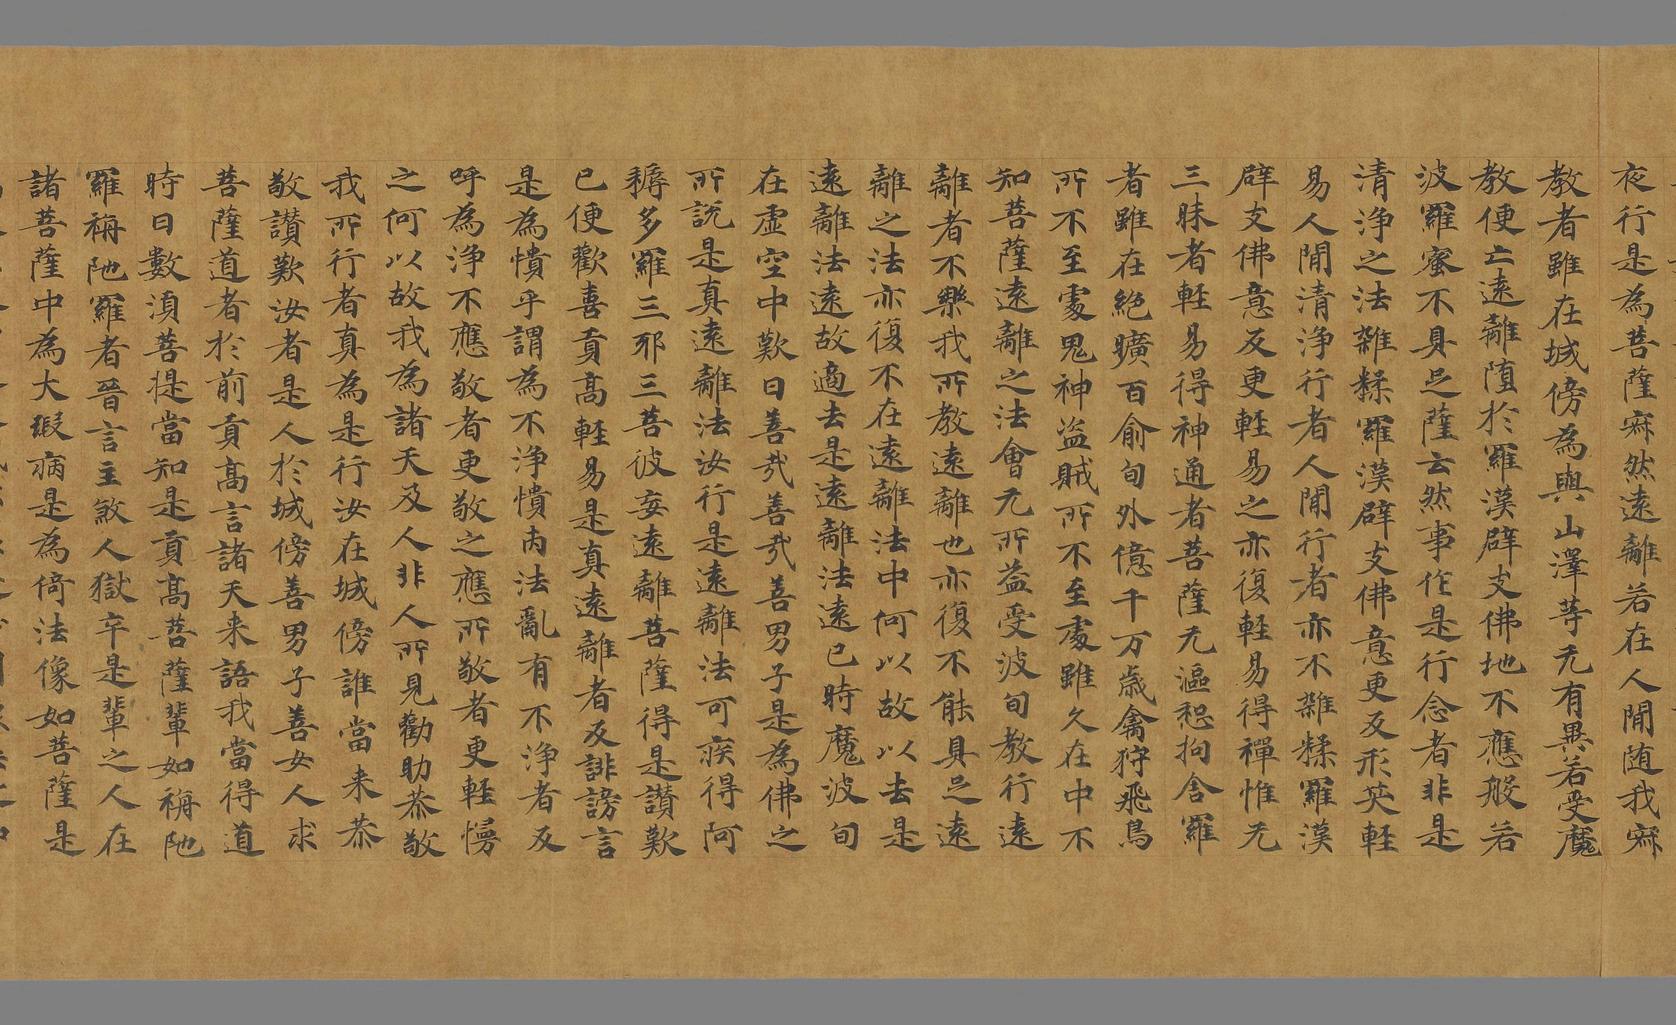 夜行是為菩薩㝥然遠離若在人間随我㝥
教者雖在城傍為與山澤等无有異若受魔
教便亡遠離堕於羅漢辟支佛地不應般若
波羅蜜不具足薩云然事作是行念者非是
清浄之法雜糅羅漢辟支佛意更及形笑軽
易人間清浄行者人間行者亦不雜糅羅漢
辟支佛意及更軽易之亦復軽易得禪惟无
三昧者軽易得神通者菩薩无漚惒拘舍羅
者雖在絶曠百俞旬外億千万歳禽狩飛鳥
所不至處鬼神盗賊所不至處雖久在中不
知菩薩遠離之法會无所益受波旬教行遠
離者不樂我所教遠離也亦復不能具足遠
離之法亦復不在遠離法中何以故以去是
遠離法遠故適去是遠離法遠已時魔波旬
在虚空中歎曰善㢤善㢤善男子是為佛之
所說是真遠離法汝行是遠離法可疾得阿
耨多羅三耶三菩彼妄遠離菩薩得是讃歎
已便歡喜貢高軽易是真遠離者及誹謗言
是為憒乎謂為不浄憒丙法亂有不浄者及
呼為浄不應敬者更敬之應所敬者更軽慢
之何以故我為諸天及人非人所見勸助恭敬
我所行者真為是行汝在城傍誰當来恭
敬讃歎汝者是人於城傍善男子善女人求
菩薩道者於前貢高言諸天来語我當得道
時日數湏菩提當知是貢高菩薩輩如栴陁
羅栴陁羅者晉言主煞人獄卒是輩之人在
諸菩薩中為大瑕病是為倚法像如菩薩是